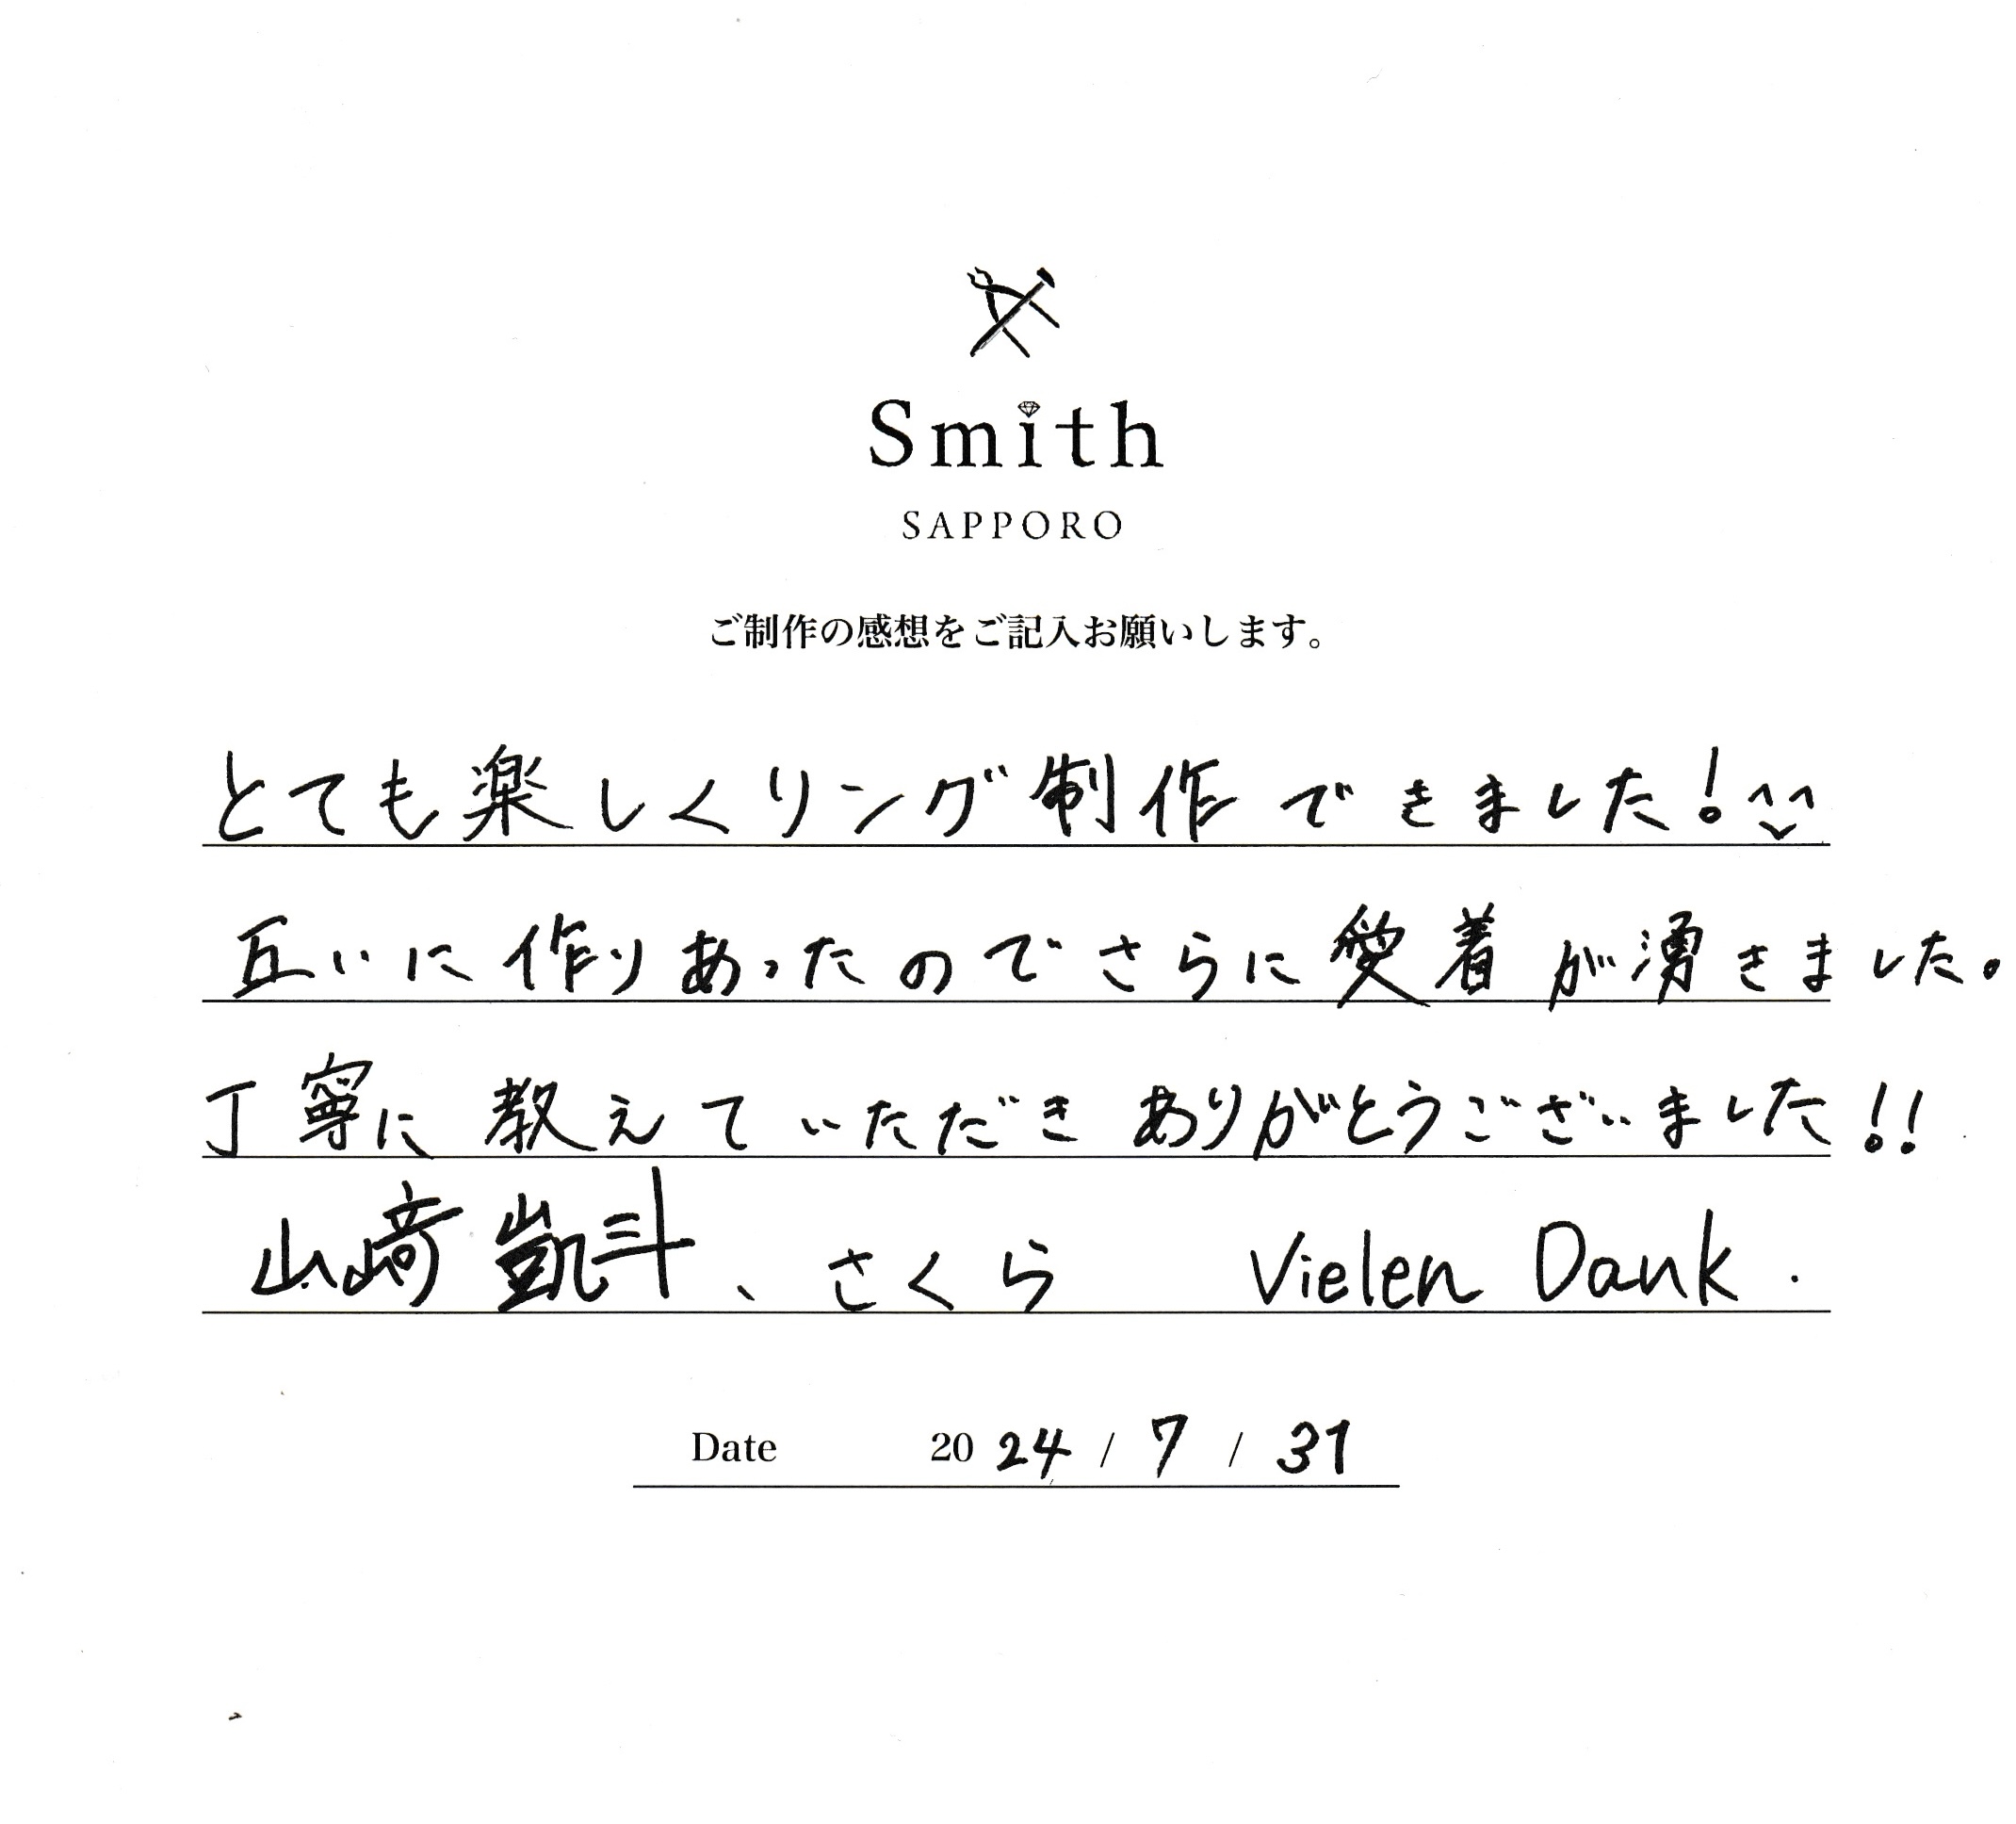 Smith
SAPPORO
ご制作の感想をご記入お願いします。
とても楽しくリング制作できました!^^
互いに作りあったのでさらに愛着が湧きました。
丁寧に教えていただきありがとうございました!!
山﨑凱斗、さくら Vielen Dank.
Date 2024 / 7 / 31